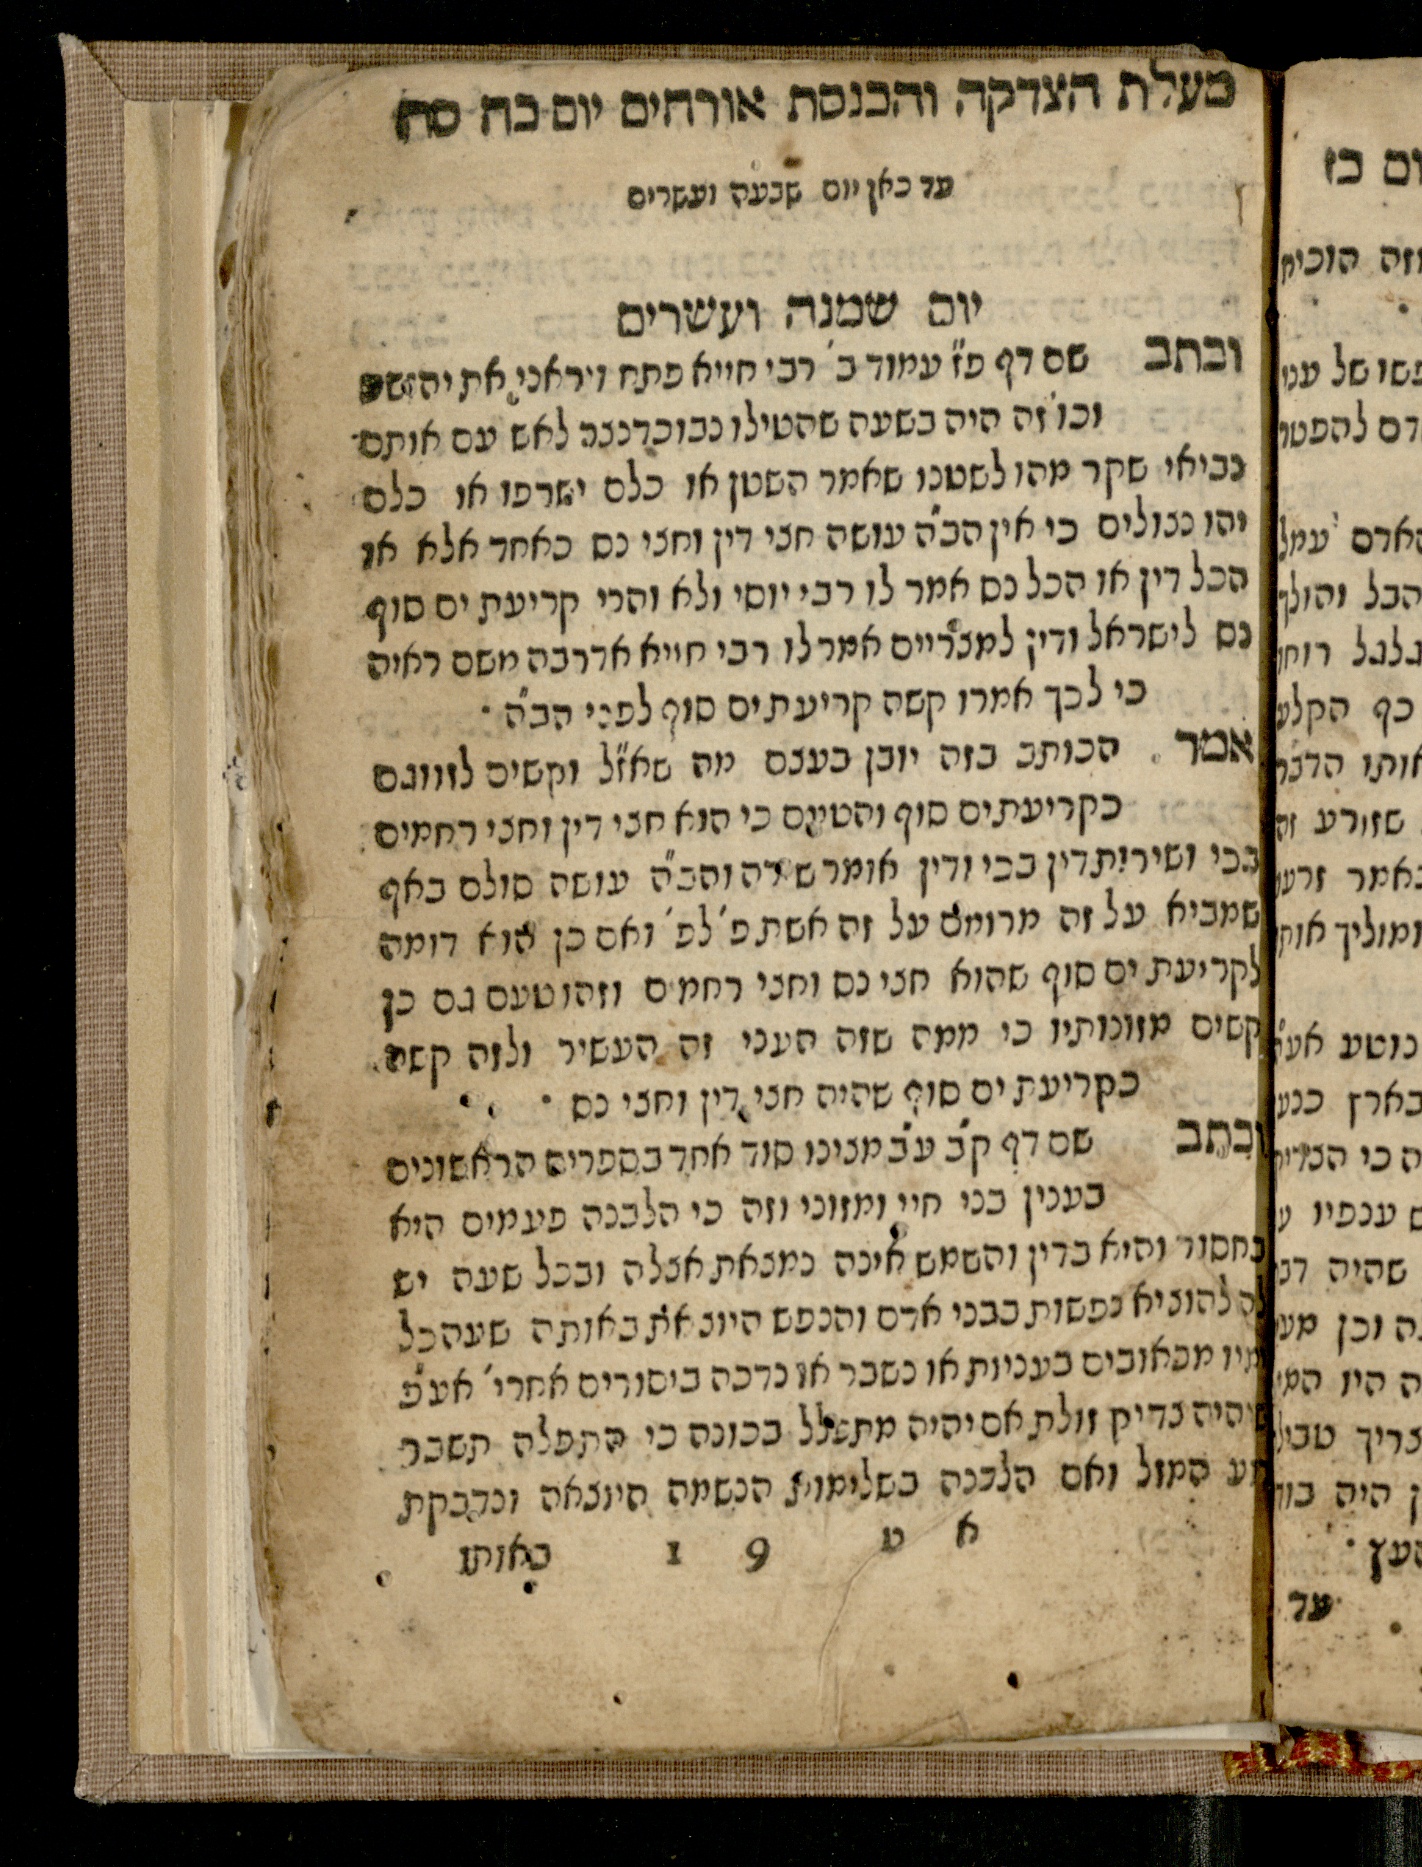 מעלת הצדקה והכנסת אורחים יום כח סח
עד כאן יום שבעה ועשרים
יום שמנה ועשרים
וכתב שם דף פז״ עמוד ב׳ רבי חייא פתח ויראני את יהושע
וכו׳ זה היה בשעה שהטילו נבוכדנצר לאש עם אותם
נביאי שקר מהו לשטנו שאמר השטן או כלם ישרפו או כלם
יהו נצולים כי אין הב״ה עושה חצי דין וחצי נס כאחד אלא או
הכל דין או הכל נס אמר לו רבי יוסי ולא והרי קריעת ים סוף
נס לישראל ודין למצריים אמר לו רבי חייא אדרבה משם ראיה
כי לכך אמרו קשה קריעת ים סוף לפני הב״ה
אמר הכותב בזה יובן בעצם מה שאז״ל וקשים לזווגם
כקריעת ים סוף והטעם כי הוא חצי דין וחצי רחמים
בכי ושירות דין בכי ודין אומר שירה והב״ה עושה סולם באף
שמביא על זה מרומם על זה אשת פ׳ לפ׳ ואם כן הוא דומה
לקריעת ים סוף שהוא חצי נס וחצי רחמים וזהו טעם גם כן
קשים מזונותיו כי ממה שזה העני זה העשיר ולזה קשה
כקריעת ים סוף שהיה חצי דין וחצי נס
וכתב שם דף ק״ב ע״ב מצינו סוד אחד בספרים הראשונים
בענין בני חיי ומזוני וזה כי הלבנה פעמים היא
בחסור והיא בדין והשמש אינה נמצאת אצלה ובכל שעה יש
לה להוציא נפשות בבני אדם והנפש היוצאת באותה שעה כל
ימיו מכאובים בעניות או נשבר או נדכה ביסורים אחרי׳ אע״פ
שיהיה צדיק זולת אם יהיה מתפלל בכונה כי התפלה תשבר
רע המזל ואם הלבנה בשלימות הנשמה היוצאה ונדבקת
א ט 9 1 באותו